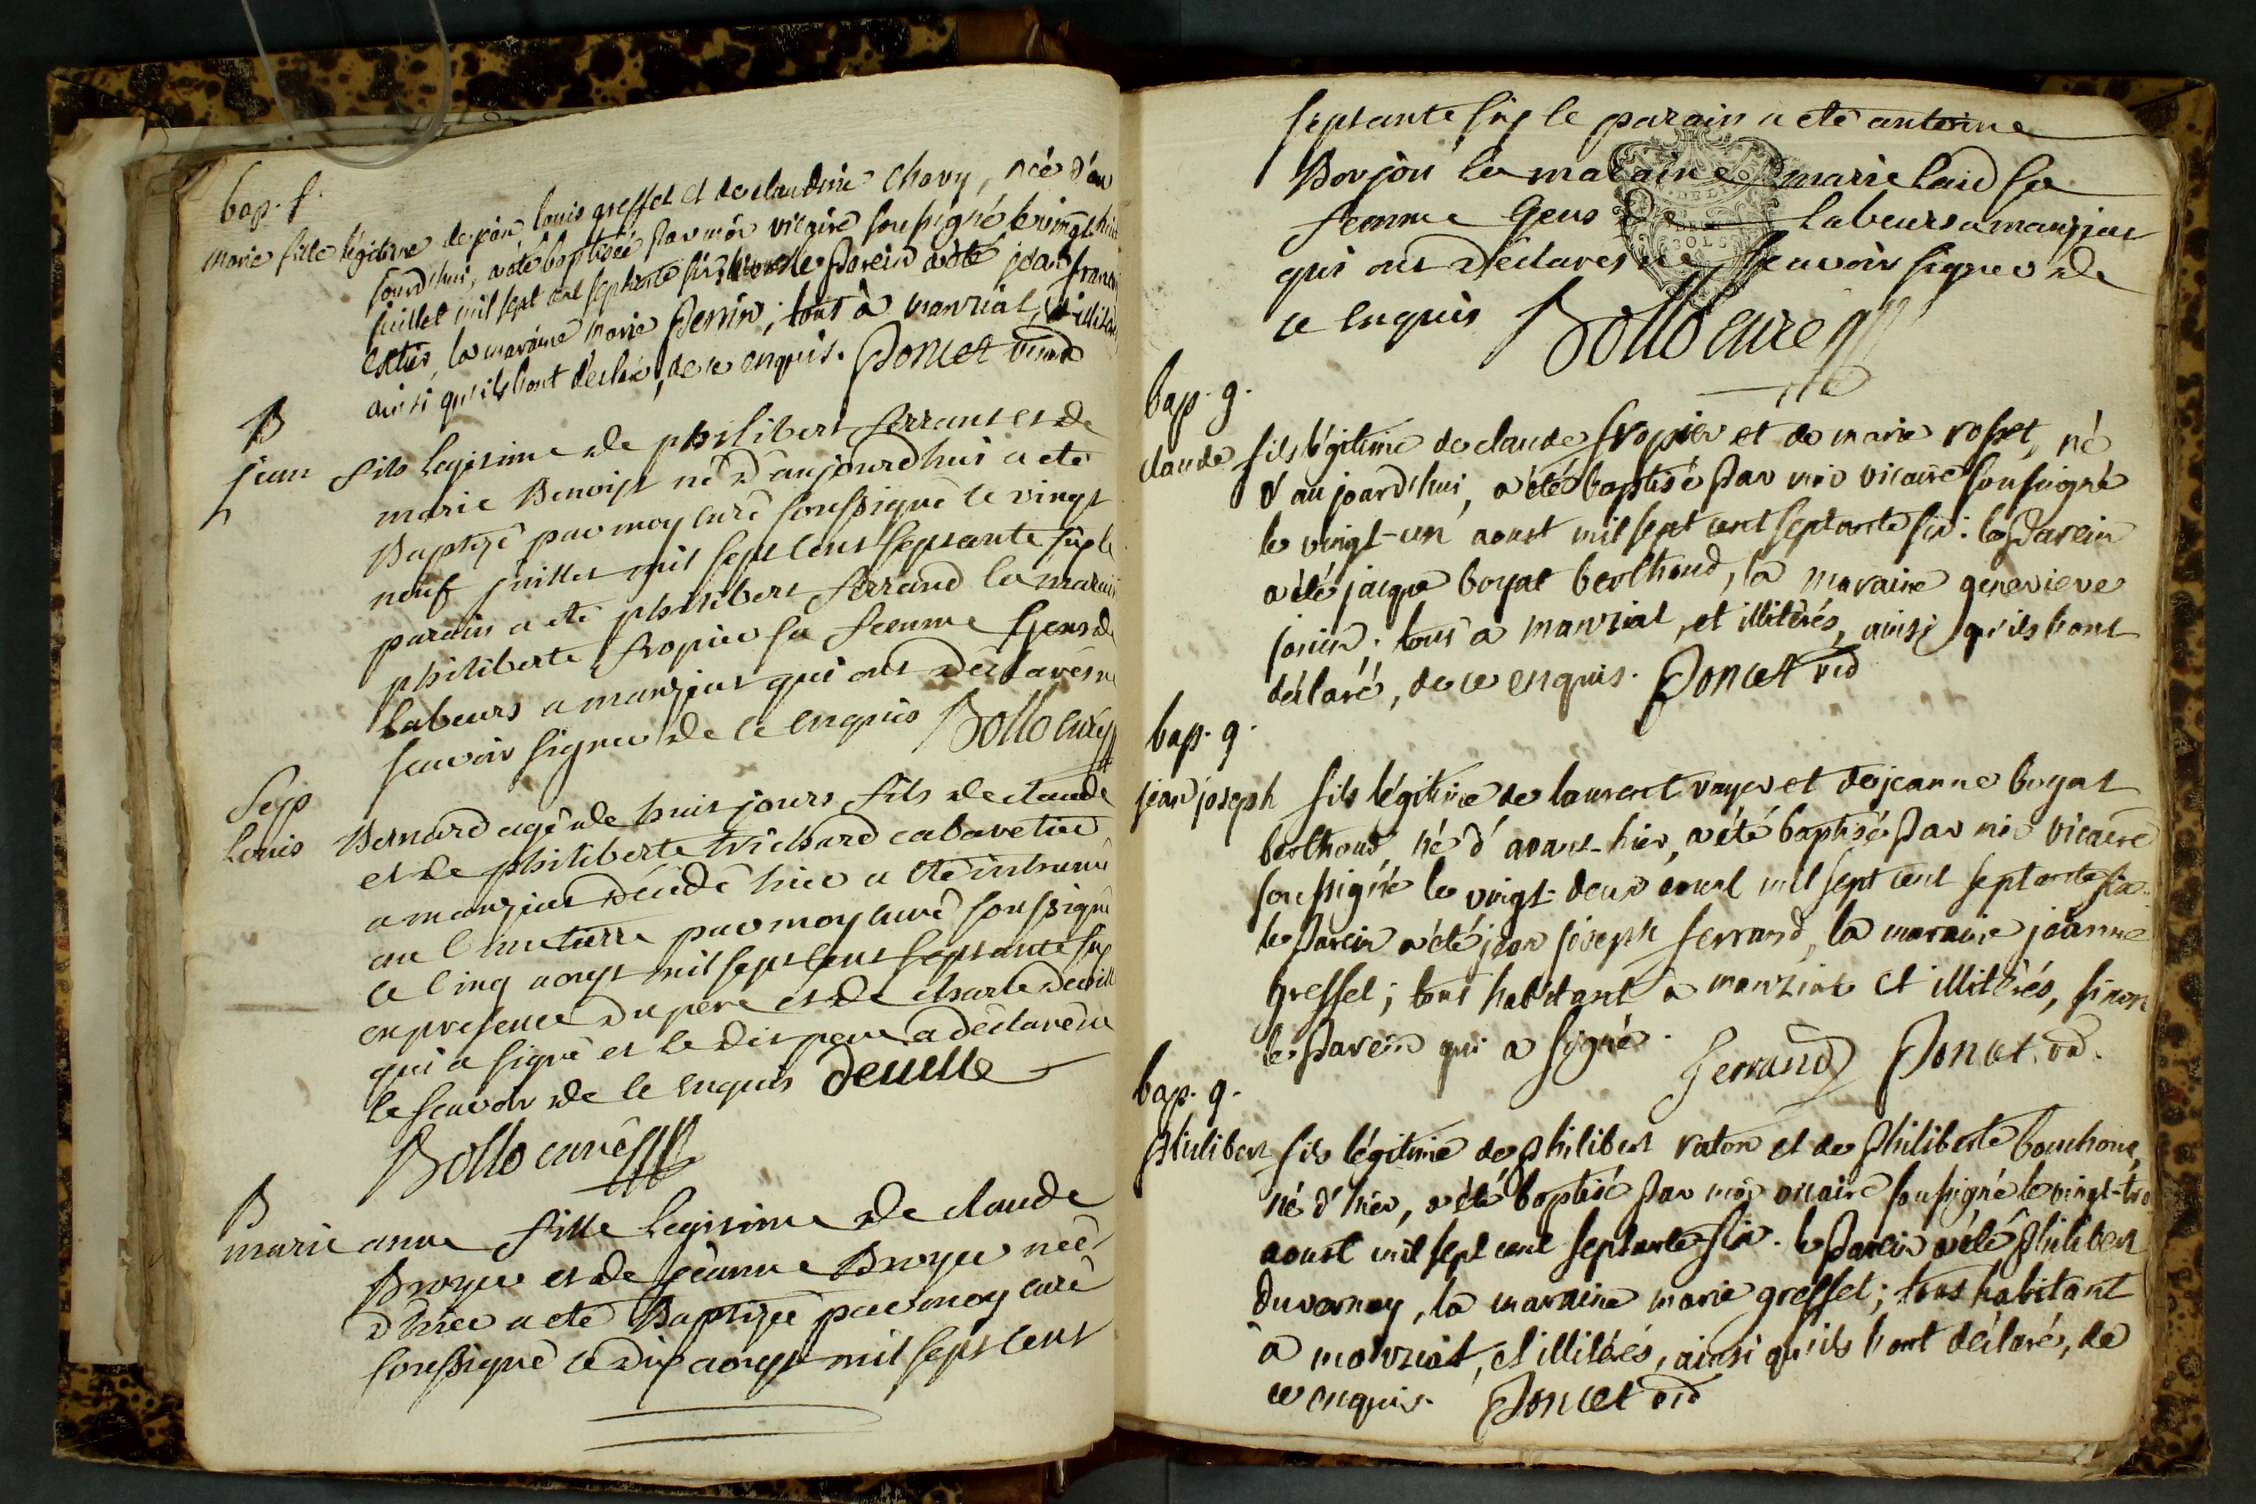 bap. f.
marie fille légitime de jean louis greffet et de claudine chavy, née d'au
jourd'hui, a été baptisée par moi vicaire soussigné le vingt-huit
juillet mil sept cent septante six, le parein a été jean francois
, la maraine marie perrin; tous à manziat, et illiterés
ainsi qu'ils l'ont déclaré, de ce enquis. Poncet vicaire
B
jean fils legitime de philibert ferrant et de
marie Benoist né d'aujourd'huis a eté
Baptizé par moy curé soussigné le vingt
neuf juillet mil sept cent septante six le
parain a eté philibert ferrand la maraine
philiberte fropier sa femme gens de
Labeurs a manziat qui ont déclarés ne
scavoir signer de ce enquis Bollo curé
Sep
Louis Bernard agé de huit jours fils de claude
et de philiberte trichard cabaretier
a manziat décédé hier a eté inhumé
au cimetierre par moy curé soussigné
ce cinq aoust mil sept cent septante six
en presence du pere et de charle deville
qui a signé et le dit pere a déclaré ne
le scavoir de ce enquis deville
Bollo curé
B
marie anne fille legitime de claude
Broyer et de jeanne Broyer née
d'hier a eté Baptizée par moy curé
soussigné ce dix aoust mil sept cent
septante six le parain a eté antoine
Bonjon la maraine marie laid sa
femme gens de labeurs a manziat
qui ont déclarés ne scavoir signer de
ce enquis Bollo curé
bap. g.
claude fils légitime de claude fropier et de marie rosset, né
d'aujourd'hui, a été baptisé par moi vicaire soussigné
le vingt-un aoust mil sept cent septante six. le parein
a été jacque boyat berthoud, la maraine genevieve
; tous à manziat, et illiterés, ainsi qu'ils l'ont
déclaré, de ce enquis. Poncet vic
bap. g.
jean joseph fils légitime de laurent voyer et de jeanne boyat
berthoud, né d'avant-hier, a été baptisé par moi vicaire
soussigné le vingt-deux aoust mil sept cent septante six.
le parein a été jean joseph ferrand, la maraine jeanne
greffet; tous habitant à manziat et illiterés, sinon
le parein qui a signé. ferrand Poncet. vic.
bap. g.
philibert fils légitime de philibert raton et de philiberte bouchoux,
né d'hier, a été baptisé par moi vicaire soussigné le vingt-trois
aoust mil sept cent septante six. le parein a été philibert
duvernay, la maraine marie greffet; tous habitant
à manziat, et illiterés, ainsi qu'ils l'ont déclaré, de
ce enquis. Poncet vic